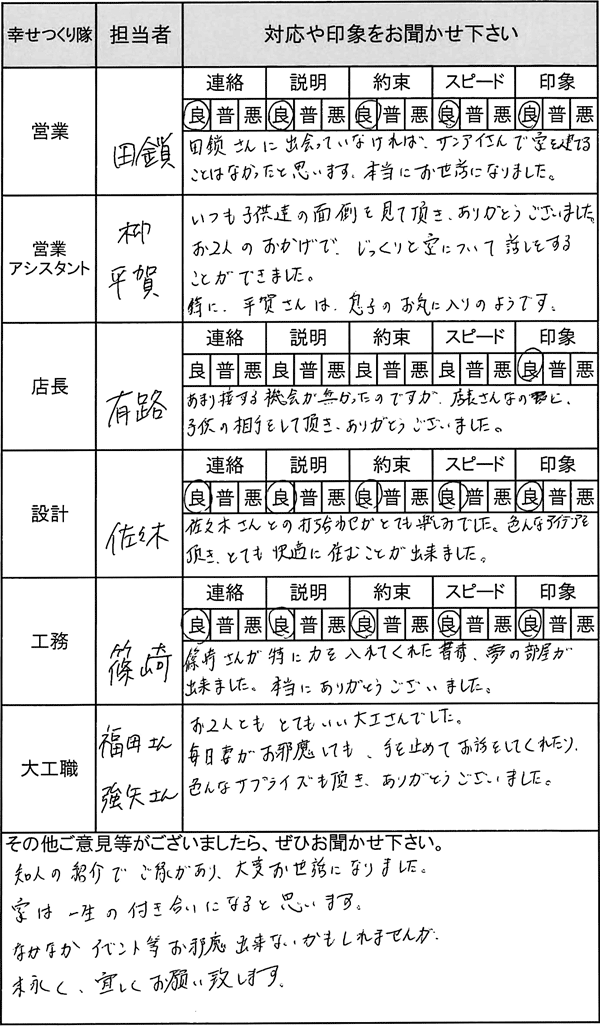 幸せつくり隊 担当者 対応や印象をお聞かせ下さい
連絡 説明 約束 スピード 印象
良 普 悪 良 普 悪 良 普 悪 良 普 悪 良 普 悪
営業 田鎖
田鎖さんに出会っていなければ、サンアイさんで家を建てる
ことはなかったと思います。本当にお世話になりました。
営業
アシスタント
柳
平賀
いつも子供達の面倒を見て頂き、ありがとうございました。
お2人のおかげで、じっくりと家について話しをする
ことができました。
特に、平賀さんは、息子のお気に入りのようです。
連絡 説明 約束 スピード 印象
良 普 悪 良 普 悪 良 普 悪 良 普 悪 良 普 悪
店長 有路
あまり接する機会が無かったのですが、店長さんなのに、
子供の相手をして頂き、ありがとうございました。
連絡 説明 約束 スピード 印象
良 普 悪 良 普 悪 良 普 悪 良 普 悪 良 普 悪
設計 佐々木
佐々木さんとの打ち合わせがとても楽しみでした。色んなアイデアを
頂き、とても快適に住むことが出来ました。
連絡 説明 約束 スピード 印象
良 普 悪 良 普 悪 良 普 悪 良 普 悪 良 普 悪
工務 篠崎
篠崎さんが特に力を入れてくれた書斎、夢の部屋が
出来ました。本当にありがとうございました。
大工職
福田さん
強矢さん
お2人とも とてもいい大工さんでした。
毎日妻がお邪魔しても、手を止めてお話をしてくれたり、
色んなサプライズも頂き、ありがとうございました。
その他ご意見等がございましたら、ぜひお聞かせ下さい。
知人の紹介でご縁があり、大変お世話になりました。
家は一生の付き合いになると思います。
なかなかイベント等お邪魔出来ないかもしれませんが、
末永く、宜しくお願い致します。